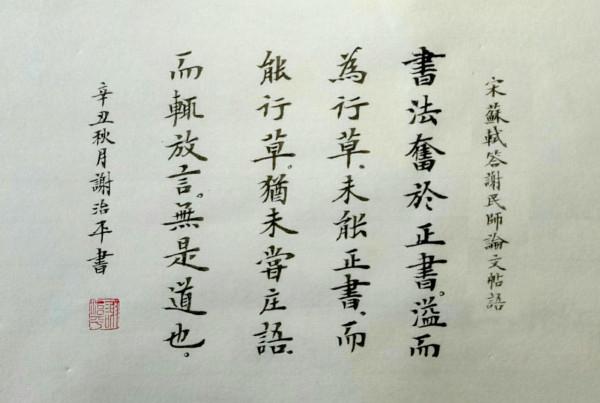 宋蘇軾答謝民師論文帖語
書法奮於正書。溢而
為行草、未能正書、而
能行草。猶未嘗庄語、
而輒放言。無是道也。
辛丑秋月謝治平書